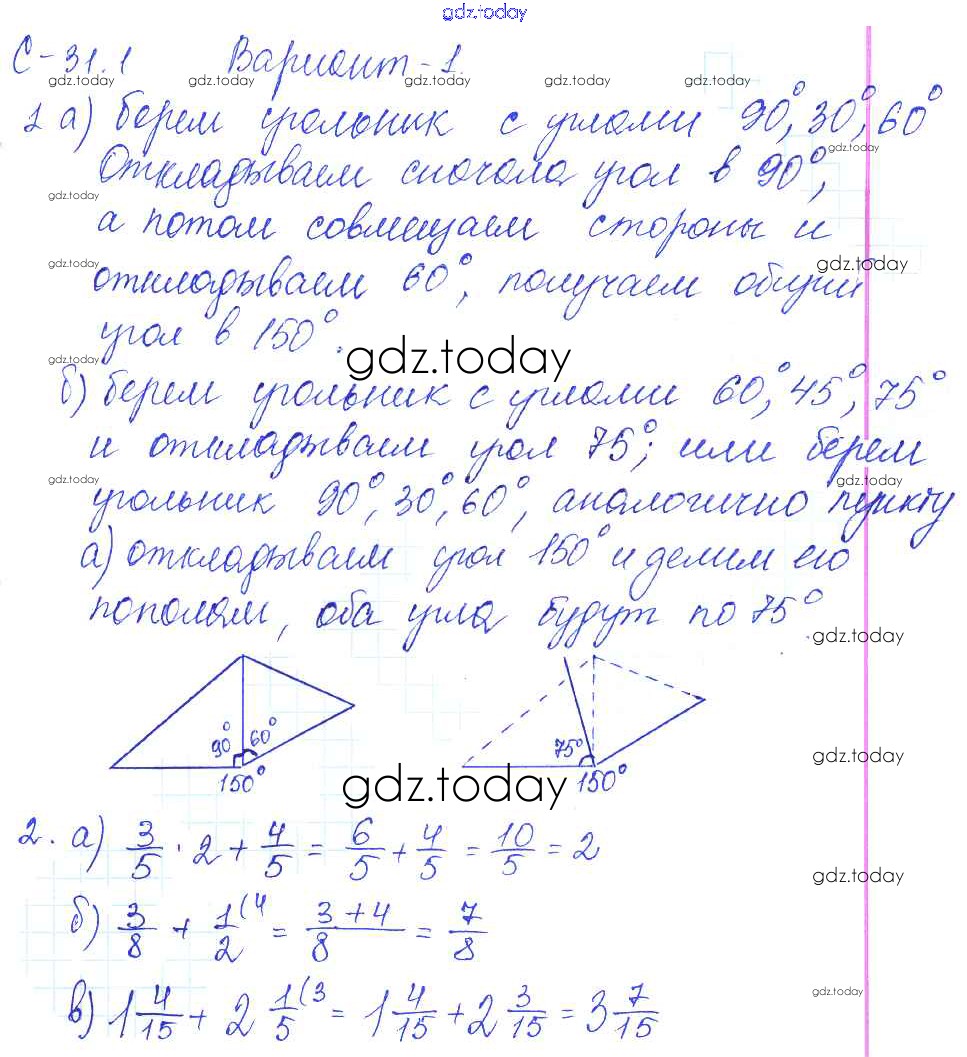 gdz.today
С-31.1 Вариант-1.
gdz.today gdz.today gdz.today gdz.today gdz.today gdz.today
1 а) берем угольник с углами 90°, 30°, 60°
gdz.today
Откладываем сначала угол в 90°,
gdz.today
а потом совмещаем стороны и
gdz.today gdz.today
откладываем 60°, получаем общий
угол в 150°.
gdz.today gdz.today
б) берем угольник с углами 60°, 45°, 75°
и откладываем угол 75°; или берем
gdz.today gdz.today gdz.today gdz.today gdz.today gdz.today
угольник 90°, 30°, 60°, аналогично пункту
а) откладываем угол 150° и делим его
пополам, оба угла будут по 75°
gdz.today
90° 60° 75°
gdz.today
150° 150°
gdz.today
2. а) 3/5 · 2 + 4/5 = 6/5 + 4/5 = 10/5 = 2
gdz.today
б) 3/8 + 1(4/2 = 3+4/8 = 7/8
в) 1 4/15 + 2 1(3/5 = 1 4/15 + 2 3/15 = 3 7/15
gdz.today